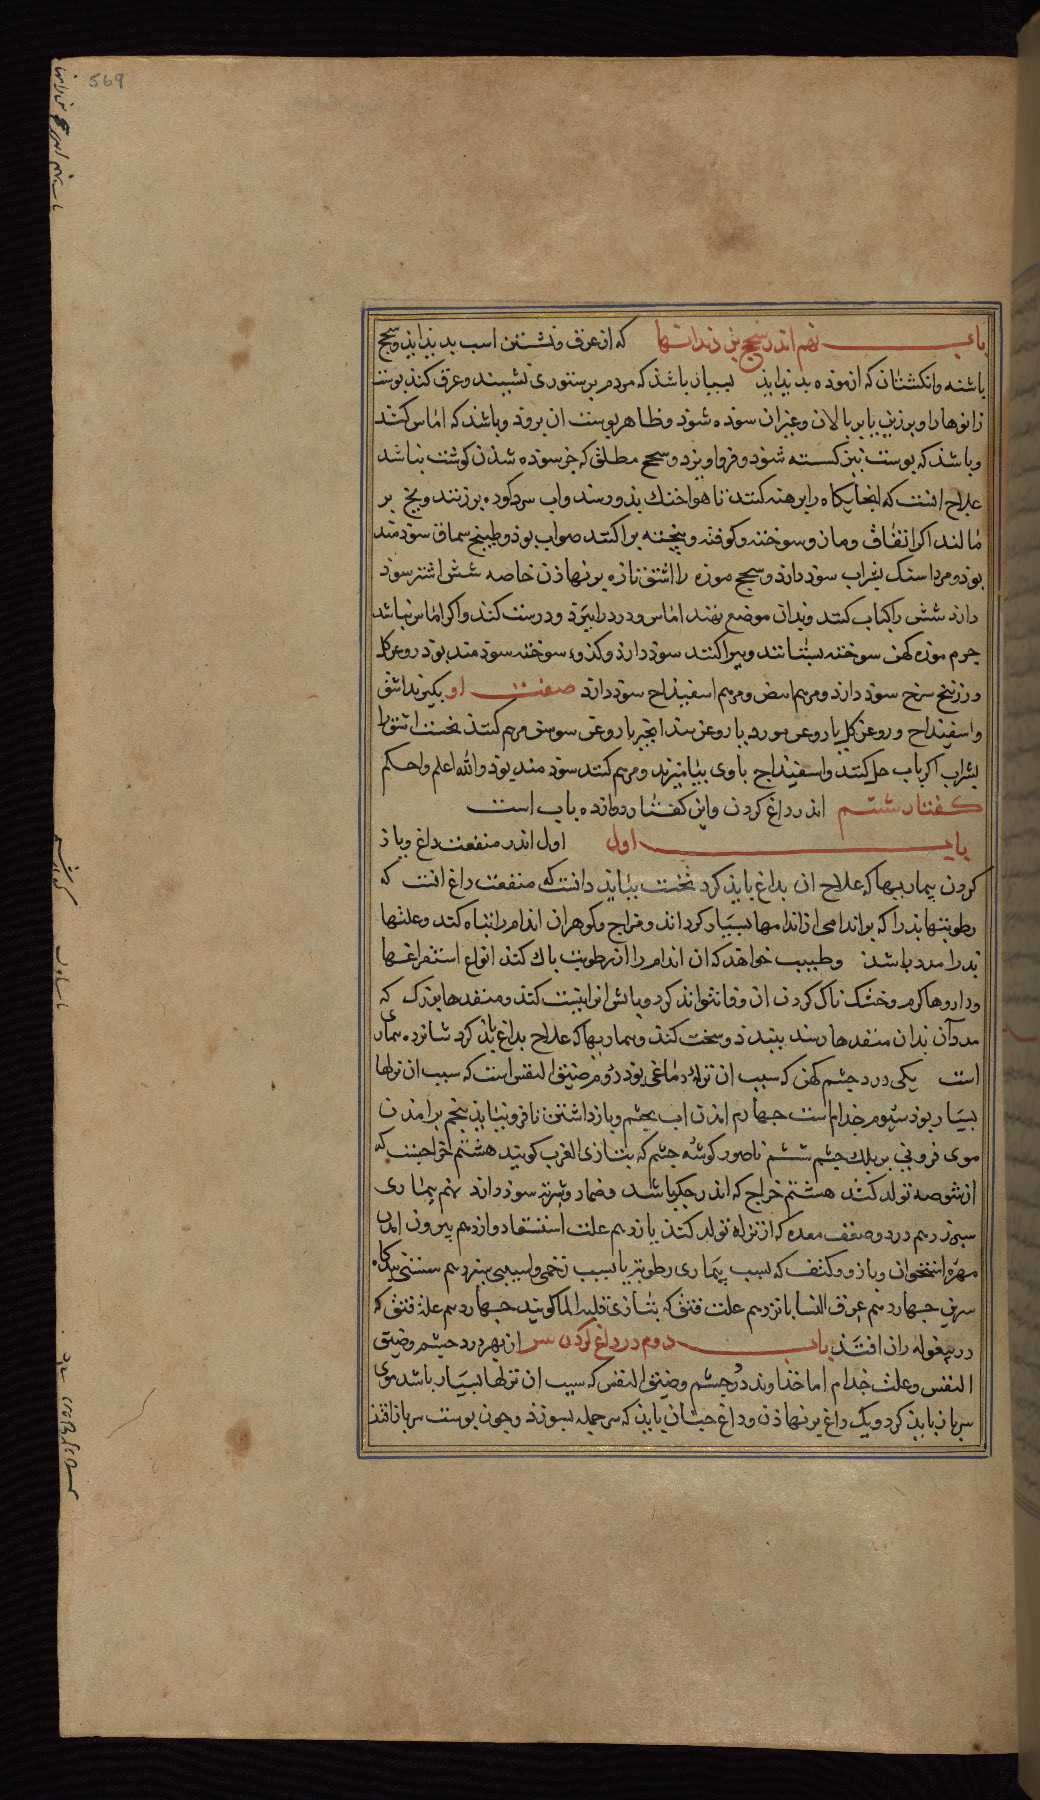 569
باب نهم اندر سحج بن رانها که از عرق و نشستن اسب بدید اید و سحج
پاشنه و انکشتان که از موزه بدید اید بسیار باشد که مردم بر ستوری نشیند و عرق کند پوست
رانوها را و بر زین یا بر پالان و غیر ان سوده شود و ظاهر پوست ان برود و باشد که اماس کند
و باشد که پوست نیز کسسته شود و فرو اویزد و سحج مطلق که جز سوده شدن کوشت نباشد
علاج انست که انجایکاه را برهنه کنند تا هوا خنك بذو رسد و اب سرد کرده برزنند و یخ بر
مالند اکر اتفاق و مازو سوخته و کوفته و بیخته برا کنند صواب بوذ و طبیخ سماق سوذمند
بوذ و مرداسنک بشراب سوذ دارذ و سحج موزه را اشتق تازه برنهاذن خاصه شش اشتر سوذ
دارذ شش را کباب کنند و بذان موضع نهند اماس و درد را ببرذ و درست کند و اکر اماس نباشد
جرم موزه کهن سوخته بستانند و برا کنند سوذ دارذ و کدوء سوخته سوذمند بوذ روغن کل
و زرنیخ سرخ سوذ دارذ و مرهم ابیض و مرهم اسفیذاج سوذ دارذ صفت او بکیرند اشق
و اسفیذاج و روغن کل یا روغن مورد یا روغن بیدانجیر یا روغن سوسن مرهم کنند نخست اشق را
بشراب اکر باب حل کنند و اسفیذاج باوی بیامیزند و مرهم کنند سوذ مند بوذ والله اعلم واحکم
کفتار ششم اندر داغ کردن و این کفتار دوازده باب است
باب اول اول اندر منفعت داغ و یاذ
کردن بیماریها که علاج ان بداغ باید کرد نخست بباید دانست که منفعت داغ انست که
رطوبتها بد را که بر اندامی از اندامها بسیار کرداند و مزاج و کوهر ان اندام را تباه کند و علتها
بد را مدد باشد و طبیب خواهد که ان اندام را از رطوبت پاك کند انواع استفراغها
و داروها کرم و خشك ناك کردن ان وفا نتواند کرد و بآتش انرا نیست کند و منفدها بزرك که
مدد آن بدان منفدها رسد ببندد و سخت کند و بیماریها که علاج بداغ باید کرد شانزده بیماری
است یکی درد چشم کهن که سبب ان نزلهٔ دماغی بوذ دوم ضیق النفس است که سبب ان نزلها
بسیار بوذ سیوم جذام است چهارم امدن اب بچشم و باز داشتن تا فرو نیاید پنجم برامدن
موی فزونی بر پلك چشم ششم ناصور کوشه چشم که بتازی الغرب کویند هشتم خراجیست که
از شوصه تولد کند هشتم خراج که اندر جکر باشد و ضماد و شربت سوذ دارد نهم بیماری
سبرز دهم درد و ضعف معده که از نزله تولد کند یازدهم علت استسقا دوازدهم بیرون امدن
مهره استخوان و بازو و کتف که بسبب بیماری رطوبت یا بسبب زخمی و اسیبی سیزدهم سستی بندکاه
سرین چهاردهم عرق النسا پانزدهم علت فتق که بتازی قلیة الما کویند چهاردهم علة فتق که
در بیغوله ران افتد باب دوم در داغ کردن سر از بهر درد چشم و ضیق
النفس و علت جذام اما خداوند درد چشم و ضیق النفس که سبب ان نزلها بسیار باشد موی
سر بازباید کرد و یك داغ برنهاذن و داغ چنان باید که سر جمله بسوزد و چون پوست سر بازافتد